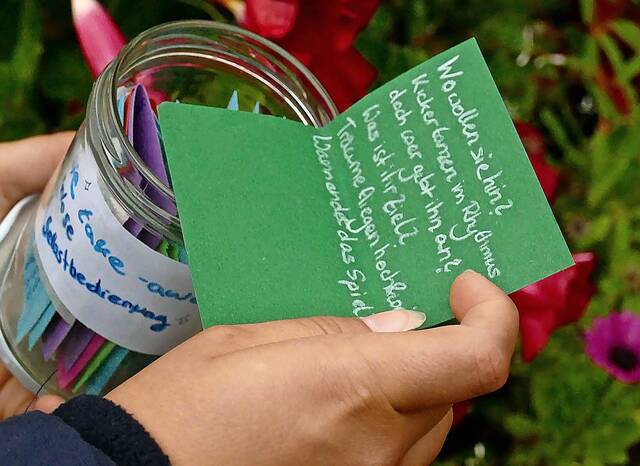 take -awa
Selbstbedienung
Wo wollen sie hin?
Kicker tanzen im Rhythmus
doch wer gibt ihn an?
Was ist ihr Ziel?
Träume fliegen
Wann endet das Spiel